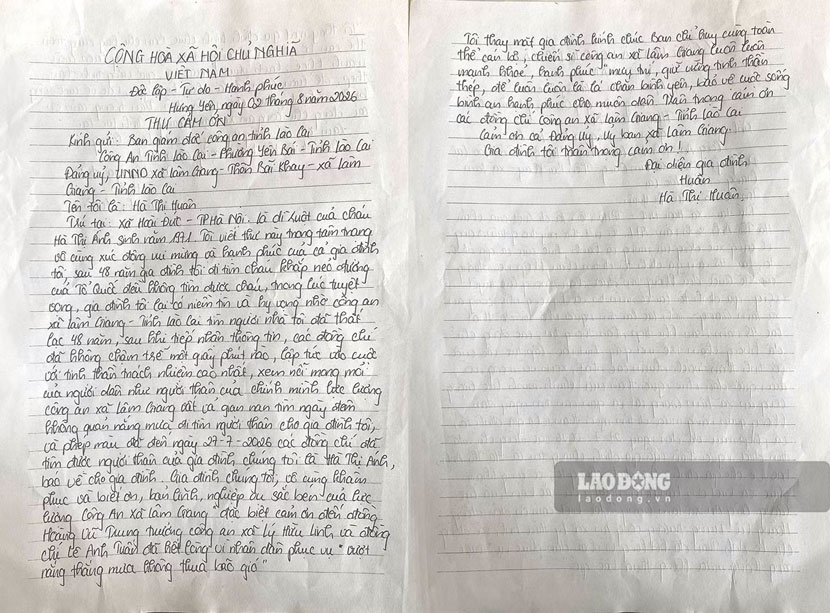 CỘNG HOÀ XÃ HỘI CHỦ NGHĨA
VIỆT NAM
Độc lập - Tự do - Hạnh phúc
Hưng Yên, ngày 02 tháng 8 năm 2026
THƯ CẢM ƠN
Kính gửi: Ban giám đốc công an tỉnh Lào Cai
Công An Tỉnh Lào Cai - Phường Yên Bái - Tỉnh Lào Cai
Đảng uỷ, UNND xã Lâm Giang - Thôn Bãi Khay - xã Lâm
Giang - Tỉnh Lào Cai
Tên tôi là: Hà Thị Huấn
Trú tại: xã Hoài Đức - TP Hà Nội. là dì ruột của cháu
Hà Thị Ánh sinh năm 1971. Tôi viết thư này trong tâm trạng
vô cùng xúc động vui mừng và hạnh phúc của cả gia đình
tôi, sau 48 năm gia đình tôi đi tìm cháu khắp nẻo đường
của Tổ Quốc đều không tìm được cháu, trong lúc tuyệt
vọng, gia đình tôi lại có niềm tin và hy vọng nhờ công an
xã Lâm Giang - Tỉnh Lào Cai tìm người nhà tôi đã thất
lạc 48 năm, sau khi tiếp nhận thông tin, các đồng chí
đã không chậm trễ một giây phút nào, lập tức vào cuộc
với tinh thần trách nhiệm cao nhất, xem nỗi mong mỏi
của người dân như người thân của chính mình lực lượng
công an xã Lâm Giang vất vả gian nan tìm ngày đêm
không quản nắng mưa đi tìm người thân cho gia đình tôi,
và phép màu đã đến ngày 27-7-2026 các đồng chí đã
tìm được người thân của gia đình chúng tôi là Hà Thị Ánh,
báo về cho gia đình. Gia đình chúng tôi, vô cùng khâm
phục và biết ơn, bản lĩnh, nghiệp vụ sắc bén của lực
lượng Công An xã Lâm Giang đặc biệt cảm ơn đến đồng
Hoàng Vũ Trung trưởng công an xã Lý Hữu Linh và đồng
chí Lê Anh Tuấn đã hết lòng vì nhân dân phục vụ "vượt
nắng thắng mưa không thua bão gió"
Tôi thay mặt gia đình kính chúc Ban chỉ huy cùng toàn
thể cán bộ, chiến sĩ công an xã Lâm Giang luôn luôn
mạnh khoẻ, hạnh phúc "mưu trí, giữ vững tinh thần
thép, để luôn luôn là lá chắn bình yên, bảo vệ cuộc sống
bình an hạnh phúc cho muôn dân Trân trọng cảm ơn
các đồng chí công an xã Lâm Giang - Tỉnh Lào Cai
Cảm ơn cả Đảng uỷ, Uỷ ban xã Lâm Giang
Gia đình tôi trân trọng cảm ơn!
Đại diện gia đình
Huấn
Hà Thị Huấn
LAO ĐỘNG
laodong.vn